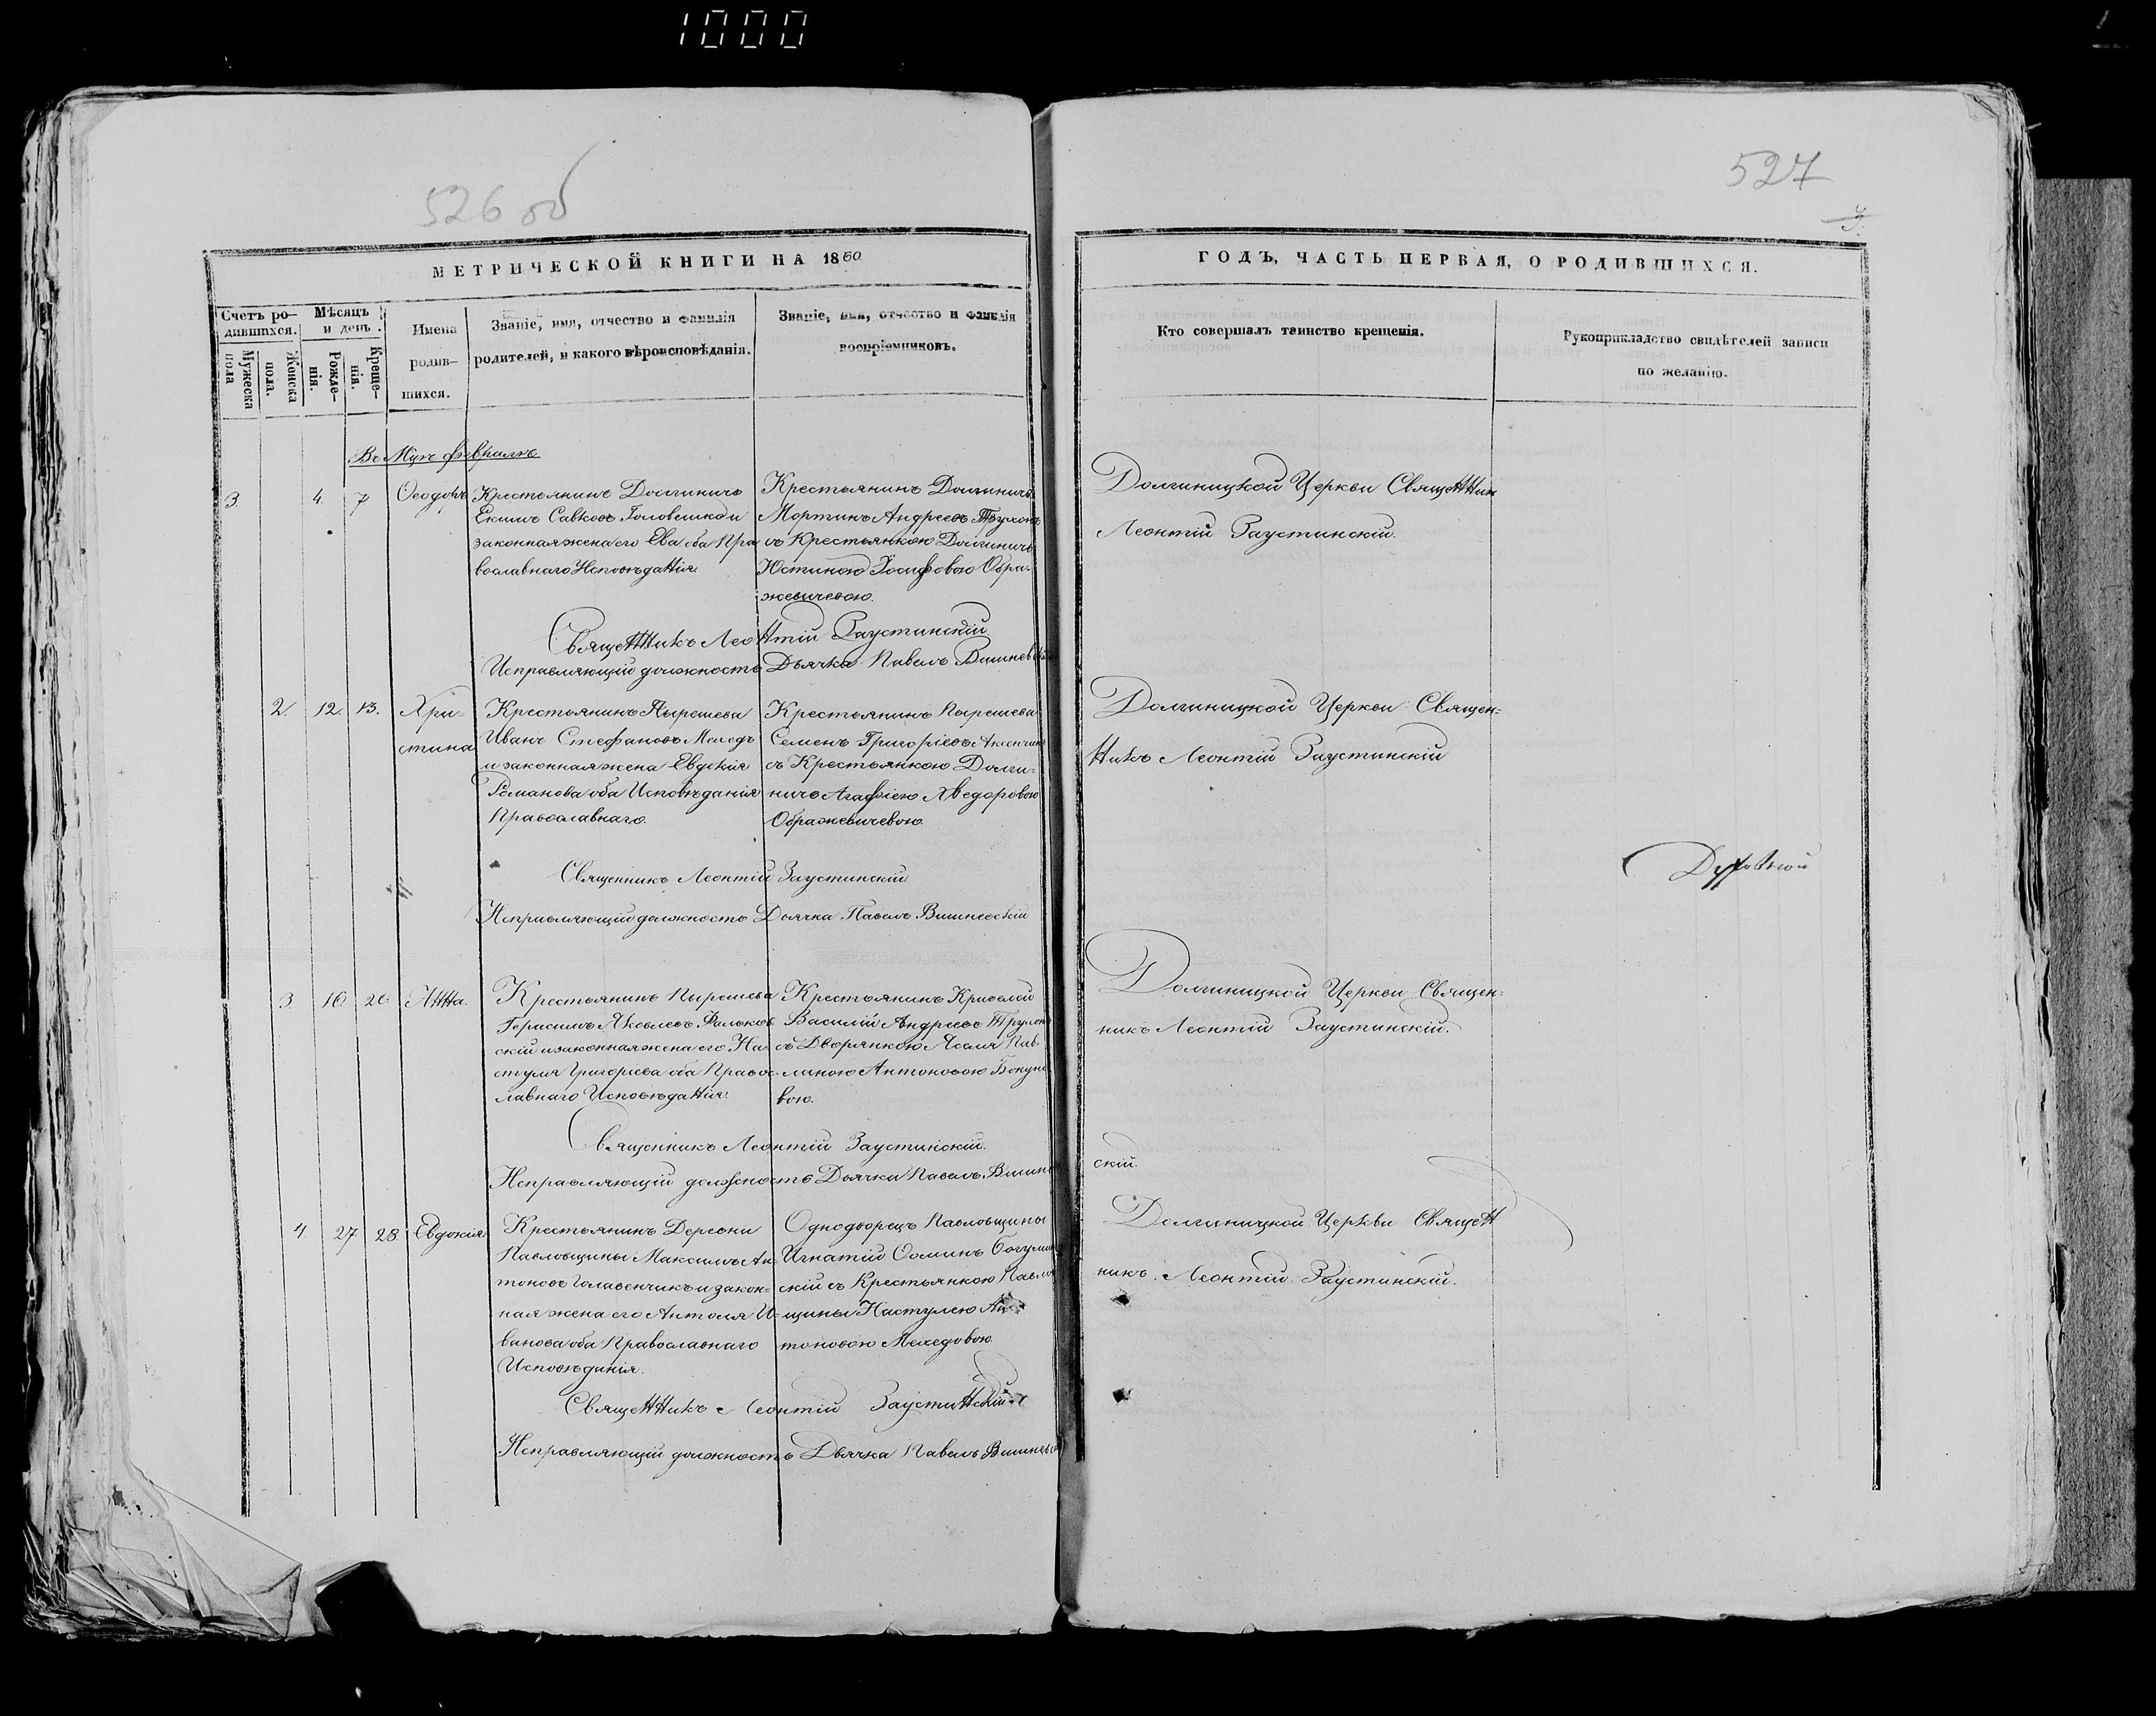 1000
526 об
527
3.
МЕТРИЧЕСКОЙ КНИГИ НА 1860
ГОДЪ, ЧАСТЬ ПЕРВАЯ, О РОДИВШИХСЯ.
Счетъ ро-
дившихся.
Мужеска
пола
Женска
пола.
Мѣсяцъ
и день.
Рожде-
нія.
Креще-
нія.
Имена
родив-
шихся.
Званіе, имя, отчество и фамилія
родителей, и какого вѣроисповѣданія.
Званіе, имя, отчество и фамилія
воспріемниковъ.
Кто совершалъ таинство крещенія.
Рукоприкладство свидѣтелей записи
по желанію.
Въ Мцѣ февралѣ
3. 4. 7 Ѳеодоръ
Крестьянинъ Долгиничъ
Екимъ Савковъ Головешко и
законная жена его Ева оба Пра
вославнаго Исповѣданія.
Крестьянинъ Долгиничъ
Мартинъ Андреевъ
съ Крестьянкою Долгиничъ
Юстиною Іосифовою Обра-
жевичевою.
Долгиницкой Церкви Священник
Леонтій Заустинскій.
Священникъ Леонтій Заустинскій.
Исправляющій должность Дьячка Павелъ Вишневскій
2. 12. 13. Хри-
стина
Крестьянинъ Пырешева
Иванъ Стефановъ Меледъ
и законная жена Евдокія
Романова оба Исповѣданія
Православнаго.
Крестьянинъ Пырешева
Семенъ Григоріевъ
съ Крестьянкою Долги-
ничъ Агафіею Хведоровою
Ображевичевою.
Долгиницкой Церкви Священ-
никъ Леонтій Заустинскій
Священникъ Леонтій Заустинскій
Исправляющій должность Дьячка Павелъ Вишневскій
Духовной
3 16 26 Анна.
Крестьянинъ Пырешева
Герасимъ Яковлевъ Фальков
скій и законная жена его На-
стуля Григорьева оба Правос-
лавнаго Исповѣданія.
Крестьянинъ
Василій Андреевъ
съ Дворянкою Пав-
линою Антоновою
вою.
Долгиницкой Церкви Священ-
никъ Леонтій Заустинскій.
Священникъ Леонтій Заустинскій.
Исправляющій должность Дьячка Павелъ Вишнев
скій.
4 27 28 Евдокія
Крестьянинъ Деревни
Павловщины Максимъ Ан-
тоновъ Галавенчикъ и закон-
ная жена его Антоля И-
ванова оба Православнаго
Исповѣданія.
Однодворецъ Павловщины
Игнатій Ѳоминъ
скій съ Крестьянкою Павлов
щины Настулею Ан-
тоновою Меледовою.
Долгиницкой Церкви Священ
никъ Леонтій Заустинскій.
Священникъ Леонтій Заустинскій
Исправляющій должность Дьячка Павелъ Вишневск